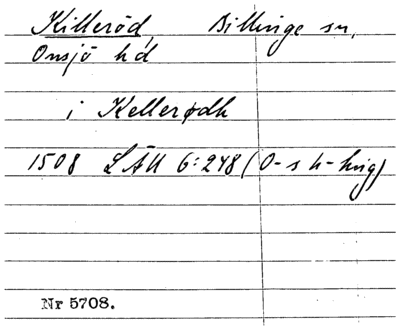 Killeröd, Billinge sn.
Onsjö hd
i Kellerødh
1508 LÄU 6:248 (O-s h-hug)
Nr 5708.